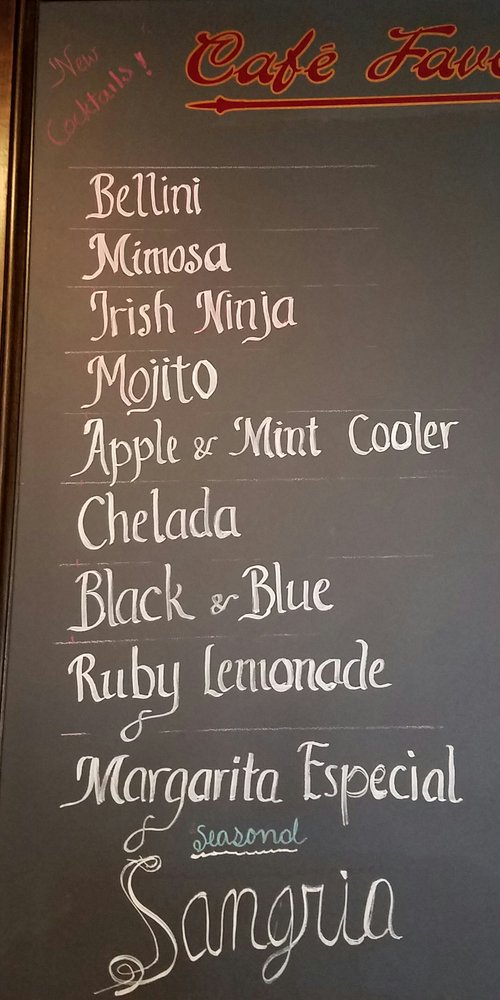 New
Cocktails!
Café Favo
Bellini
Mimosa
Irish Ninja
Mojito
Apple & Mint Cooler
Chelada
Black & Blue
Ruby Lemonade
Margarita Especial
& seasonal
Sangria